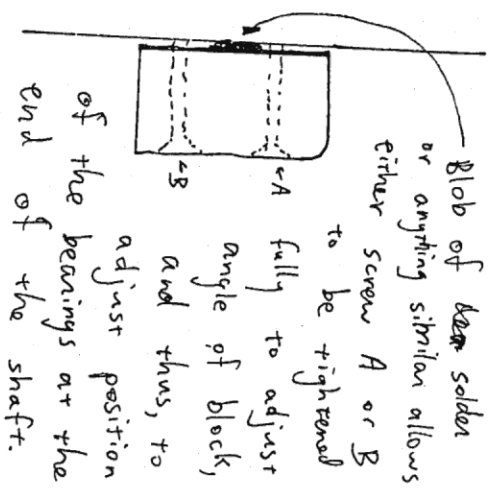 Blob of solder
or anything similar allows
either screw A or B
to be tightened
fully to adjust
angle of block,
and thus, to
adjust position
of the bearings at the
end of the shaft.
←A
←B